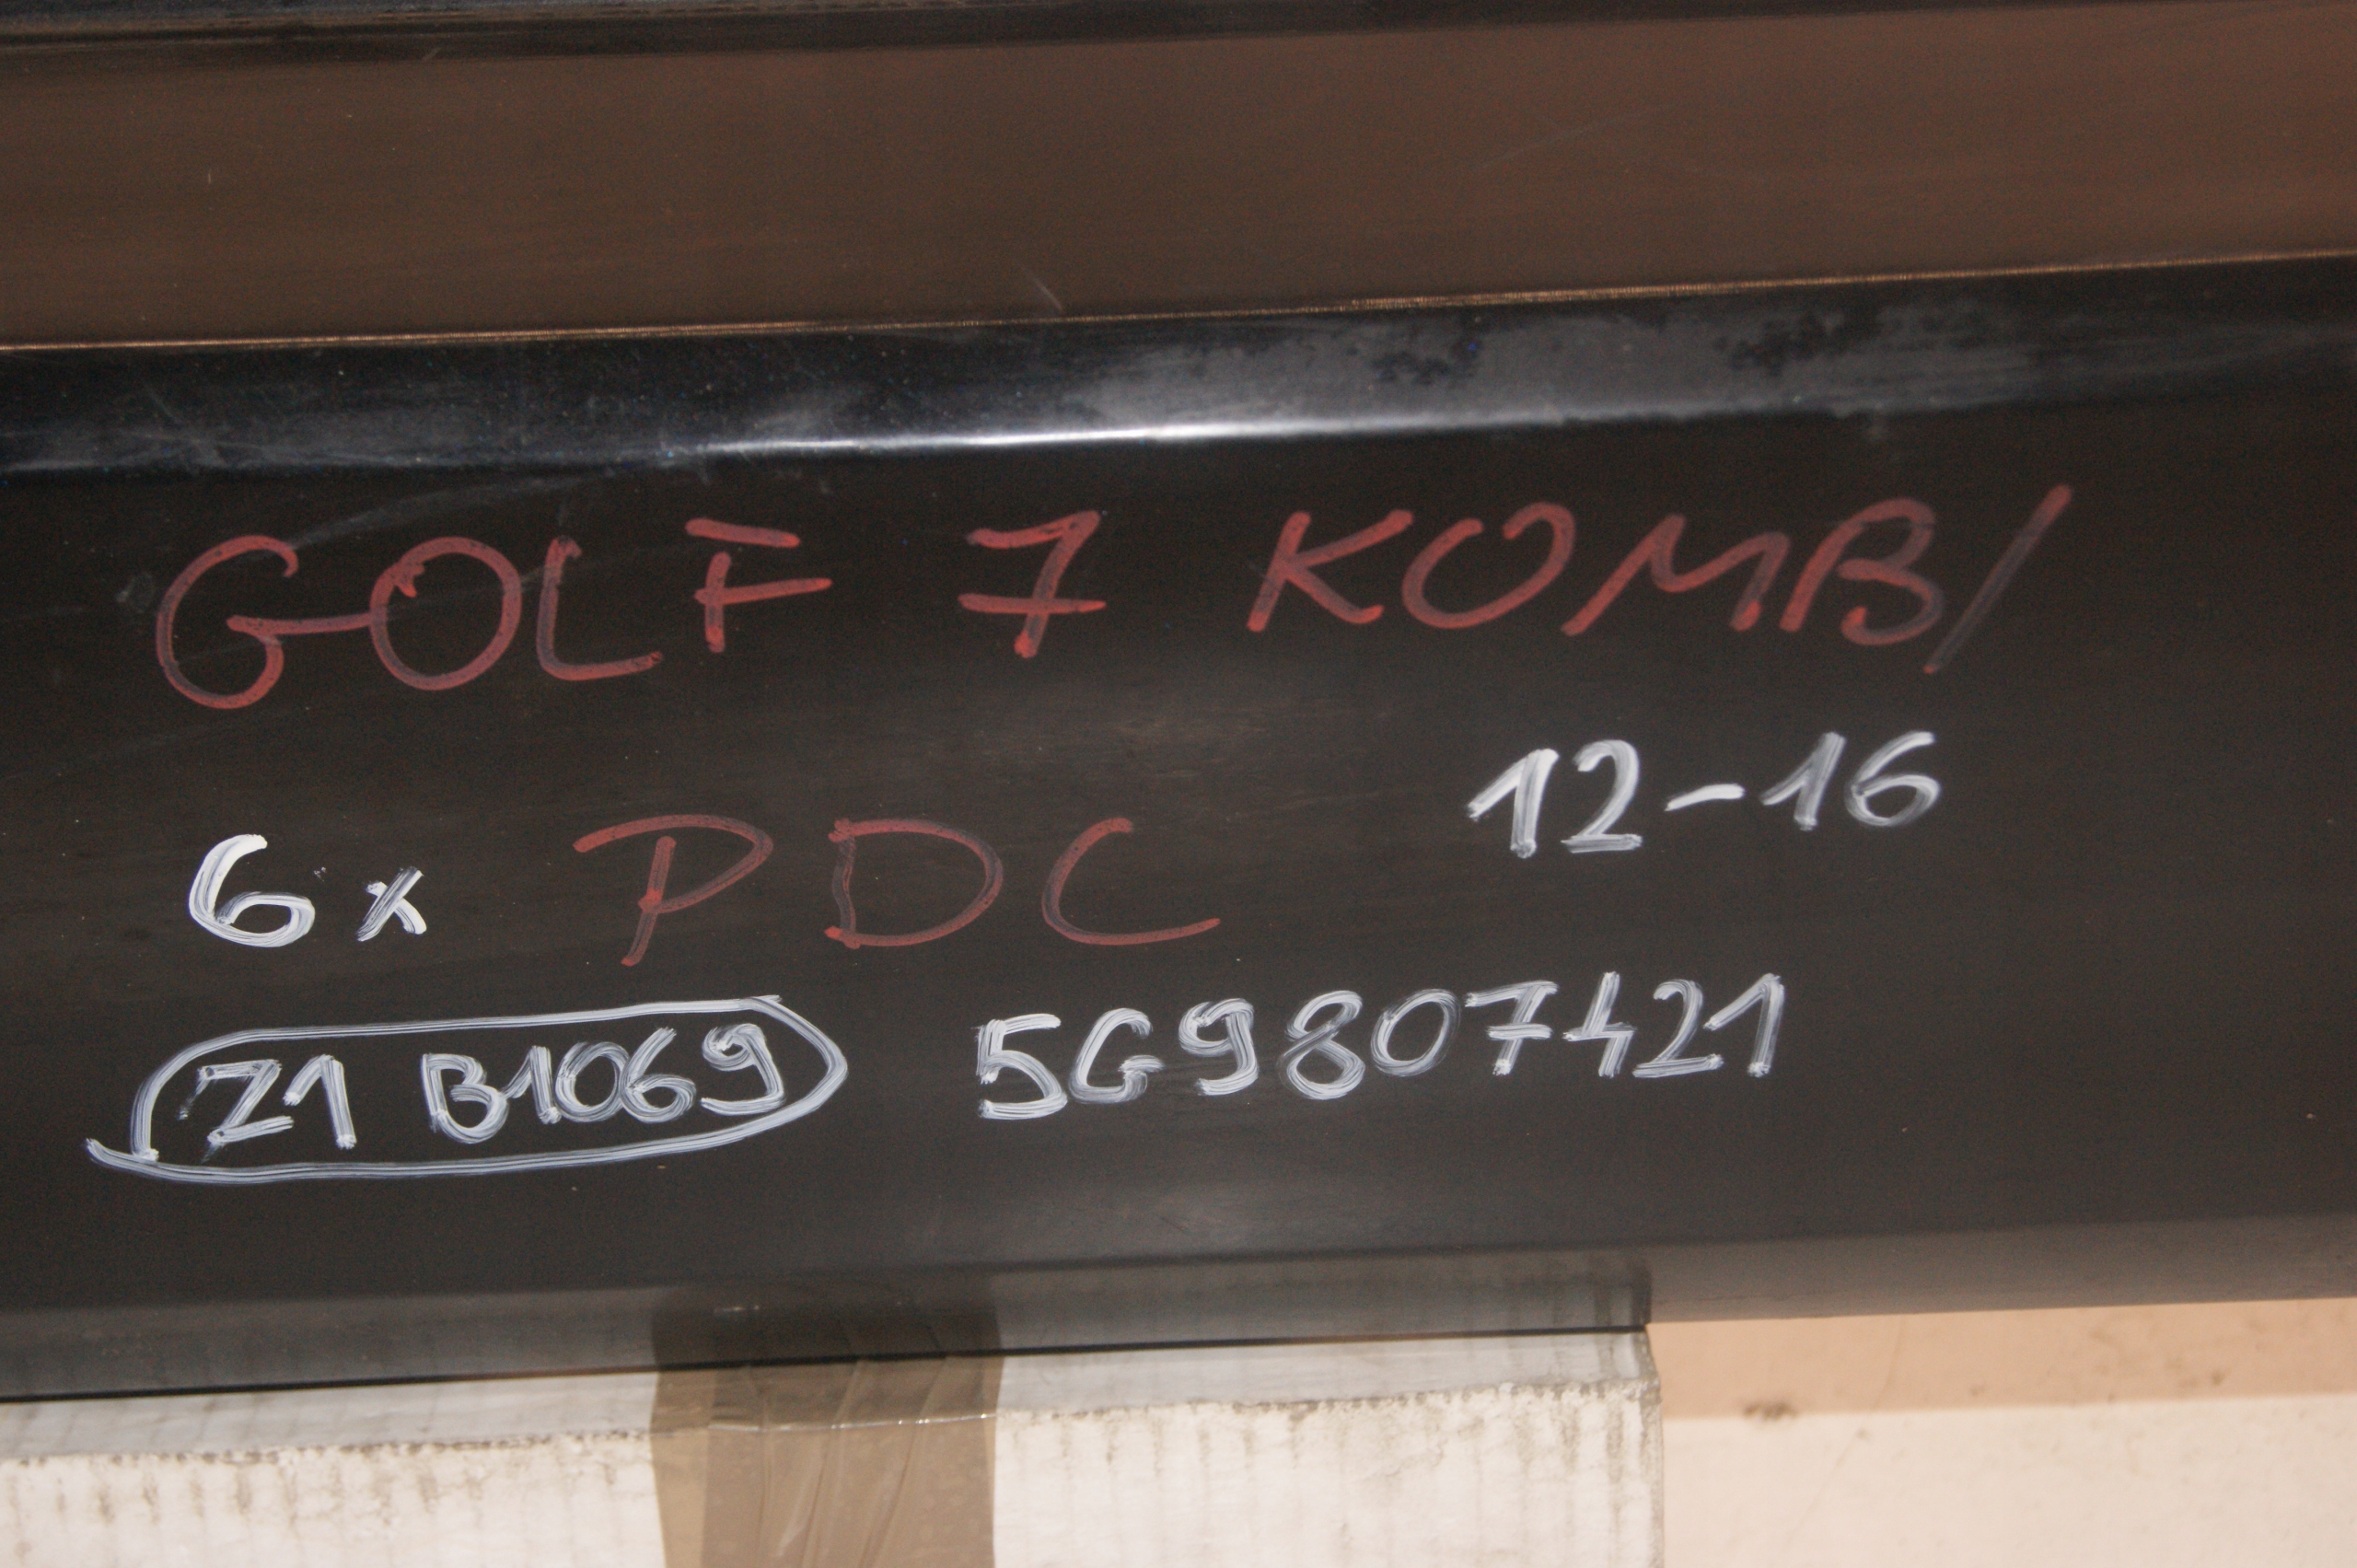 GOLF 7 KOMBI
12-16
6x PDC
Z1 B1069 5G9807421